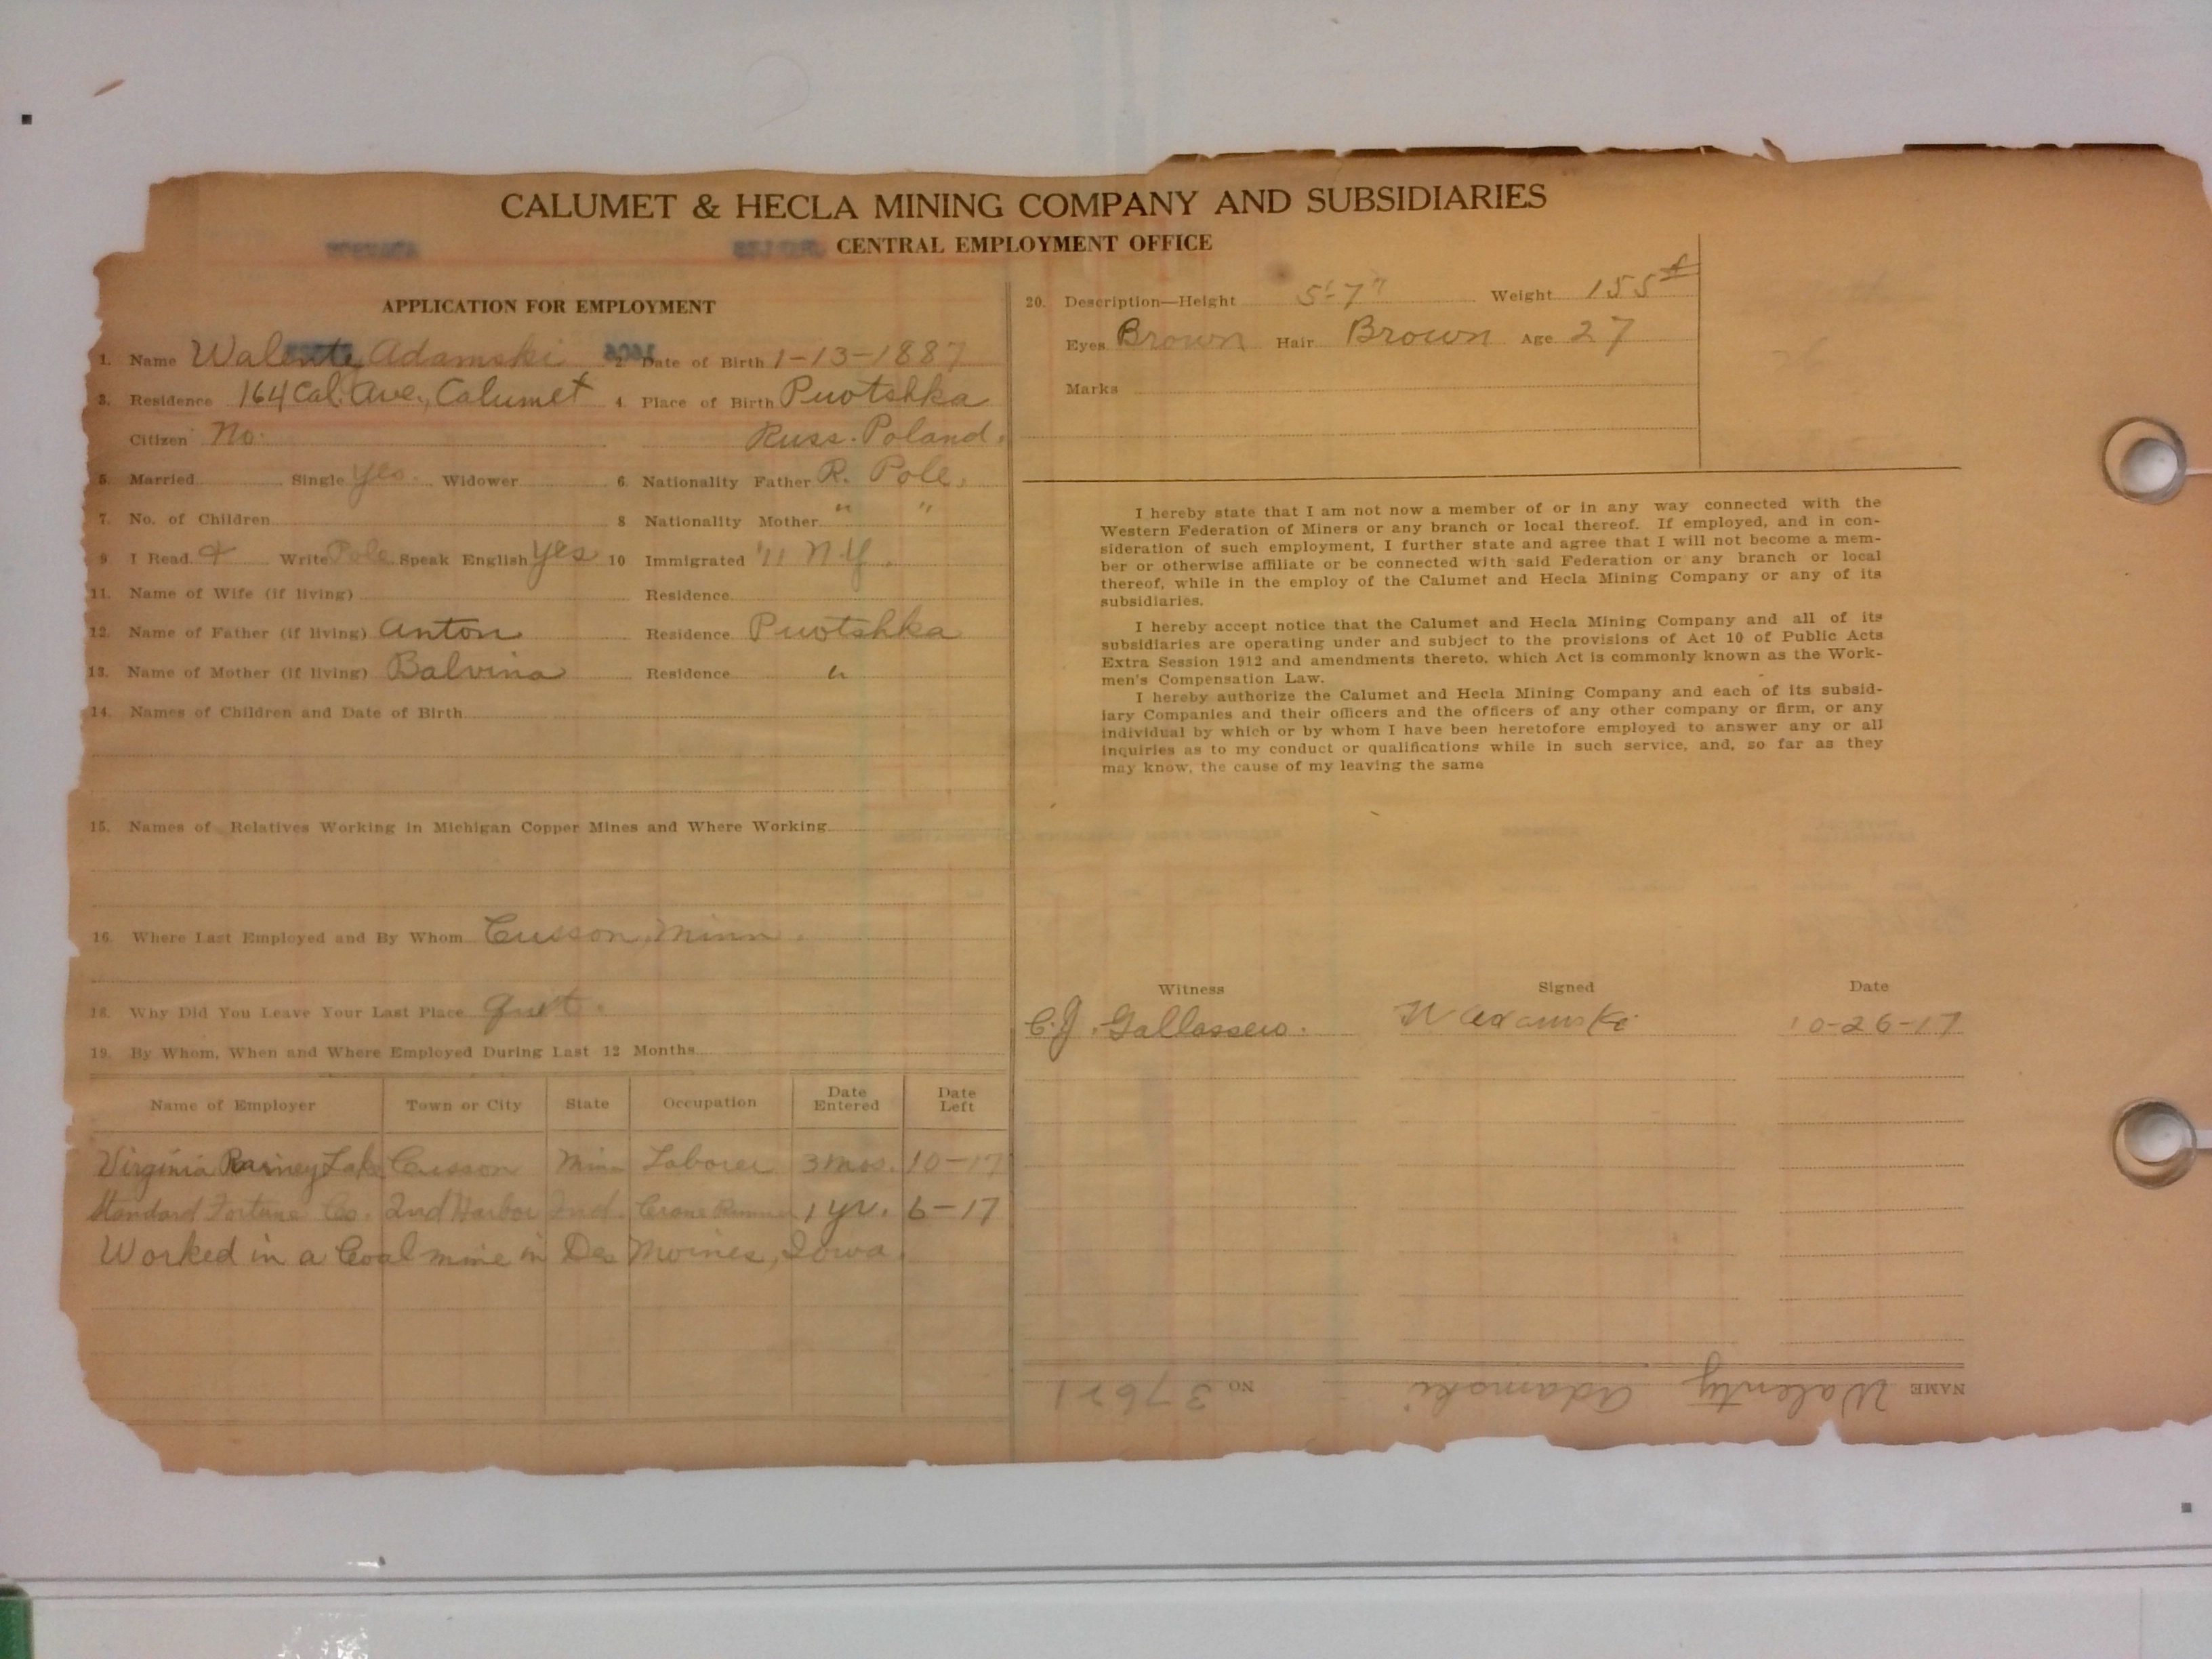 CALUMET & HECLA MINING COMPANY AND SUBSIDIARIES
CENTRAL EMPLOYMENT OFFICE
APPLICATION FOR EMPLOYMENT
1. Name Walente Adamski 2. Date of Birth 1-13-1887
3. Residence 164 Cal. Ave., Calumet 4. Place of Birth Puotshka
Citizen No. Russ. Poland.
5. Married Single Yes. Widower 6. Nationality Father R. Pole,
7. No. of Children 8 Nationality Mother " "
9 I Read & Write Pole Speak English Yes 10 Immigrated '11 N.Y.
11. Name of Wife (if living) Residence
12. Name of Father (if living) Anton Residence Puotshka
13. Name of Mother (if living) Balvina Residence "
14. Names of Children and Date of Birth
15. Names of Relatives Working in Michigan Copper Mines and Where Working
16. Where Last Employed and By Whom Cusson, Minn.
18. Why Did You Leave Your Last Place Quit.
19. By Whom, When and Where Employed During Last 12 Months
Name of Employer Town or City State Occupation Date Entered Date Left
Virginia Rainey Lake Cusson Minn Laborer 3 mos. 10-17
Standard Fortune Co. Ind Harbor Ind. Crane Runner 1 yr. 6-17
Worked in a Coal mine in Des Moines, Iowa.
20. Description—Height 5'-7" Weight 155 #
Eyes Brown Hair Brown Age 27
Marks
I hereby state that I am not now a member of or in any way connected with the
Western Federation of Miners or any branch or local thereof. If employed, and in con-
sideration of such employment, I further state and agree that I will not become a mem-
ber or otherwise affiliate or be connected with said Federation or any branch or local
thereof, while in the employ of the Calumet and Hecla Mining Company or any of its
subsidiaries.
I hereby accept notice that the Calumet and Hecla Mining Company and all of its
subsidiaries are operating under and subject to the provisions of Act 10 of Public Acts
Extra Session 1912 and amendments thereto, which Act is commonly known as the Work-
men's Compensation Law.
I hereby authorize the Calumet and Hecla Mining Company and each of its subsid-
iary Companies and their officers and the officers of any other company or firm, or any
individual by which or by whom I have been heretofore employed to answer any or all
inquiries as to my conduct or qualifications while in such service, and, so far as they
may know, the cause of my leaving the same
Witness Signed Date
C.J. Gallassero. W Adamski 10-26-17
NAME Walenty Adamski NO 37621